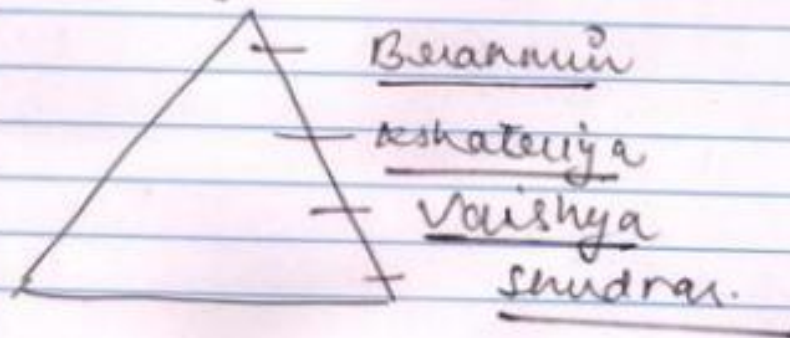 Brahmin
Kshatriya
Vaishya
Shudras.